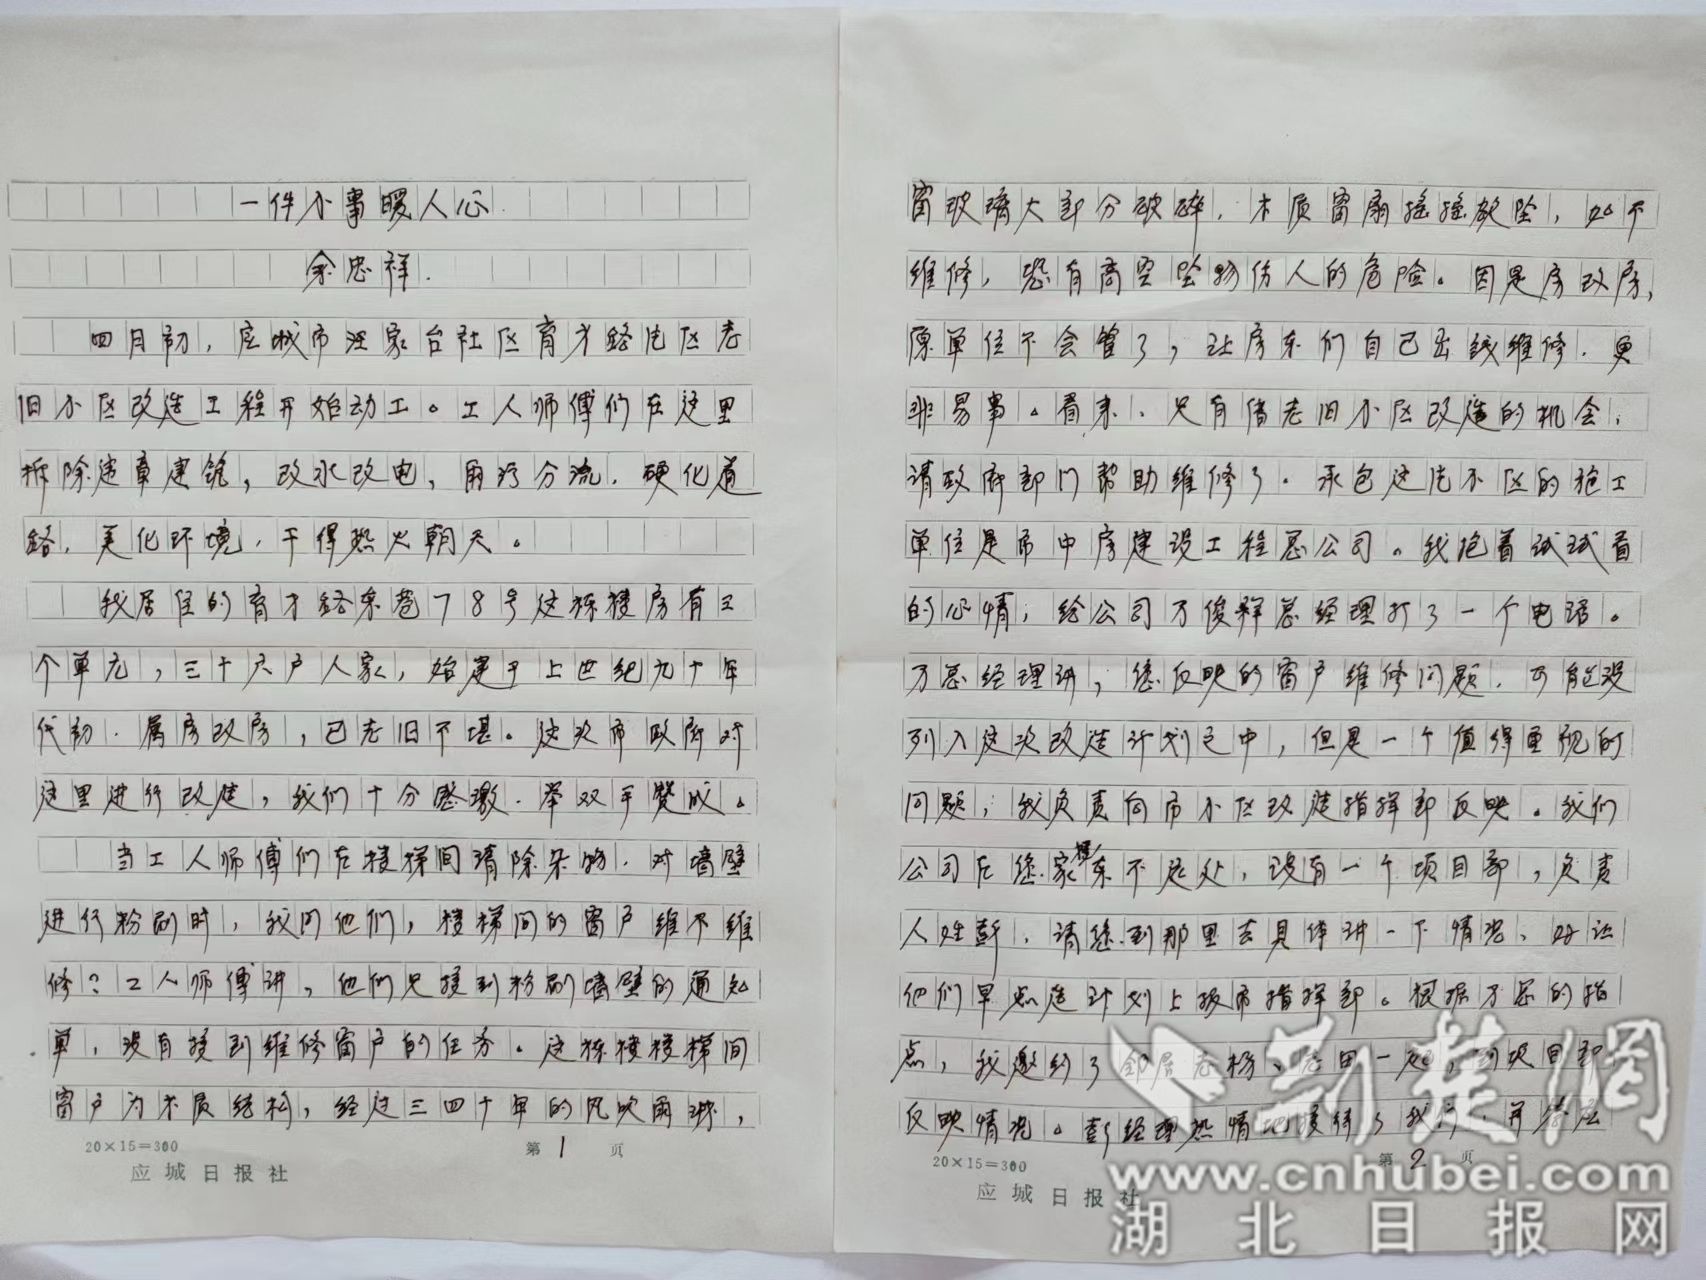 一件小事暖人心
余忠祥
四月初，应城市汪家台社区育才路片区老
旧小区改造工程开始动工。工人师傅们在这里
拆除违章建筑，改水改电，雨污分流，硬化道
路，美化环境，干得热火朝天。
我居住的育才路东巷78号这栋楼房有三
个单元，三十六户人家，始建于上世纪九十年
代初，属房改房，已老旧不堪。这次市政府对
这里进行改造，我们十分感激，举双手赞成。
当工人师傅们在楼梯间清除杂物，对墙壁
进行粉刷时，我问他们，楼梯间的窗户维不维
修？工人师傅讲，他们只接到粉刷墙壁的通知
单，没有接到维修窗户的任务。这栋楼楼梯间
窗户为木质结构，经过三四十年的风吹雨淋，
20×15=300
第1页
应城日报社
窗玻璃大部分破碎，木质窗扇摇摇欲坠，如不
维修，恐有高空坠物伤人的危险。因是房改房，
原单位不会管了，让房东们自己出钱维修，更
非易事。看来，只有借老旧小区改造的机会，
请政府部门帮助维修了。承包这片小区的施工
单位是市中房建设工程总公司。我抱着试试看
的心情，给公司万俊祥总经理打了一个电话。
万总经理讲，您反映的窗户维修问题，可能没
列入这次改造计划之中，但是一个值得重视的
问题，我负责向市小区改造指挥部反映。我们
公司在您家楼东不远处，设有一个项目部，负责
人姓彭，请您到那里去具体讲一下情况，好让
他们早点造计划上报市指挥部。根据万总的指
点，我邀约了邻居老杨、老田一起，到项目部
反映情况。彭经理热情地接待了我们，并
20×15=300
第2页
应城日报社
荆楚网
www.cnhubei.com
湖北日报网